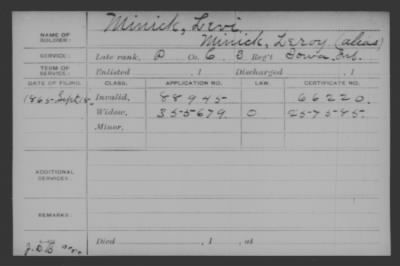 NAME OF SOLDIER: Minick, Levi
Minick, Leroy (alias)
SERVICE: Late rank, P Co. C, 3 Reg't Iowa Inf.
TERM OF SERVICE: Enlisted , 1 Discharged , 1
DATE OF FILING. CLASS. APPLICATION NO. LAW. CERTIFICATE NO.
1865-Sept 18- Invalid, 88945 66220.
Widow, 355679. O 257585.
Minor,
ADDITIONAL SERVICES:
REMARKS:
Died , 1 , at